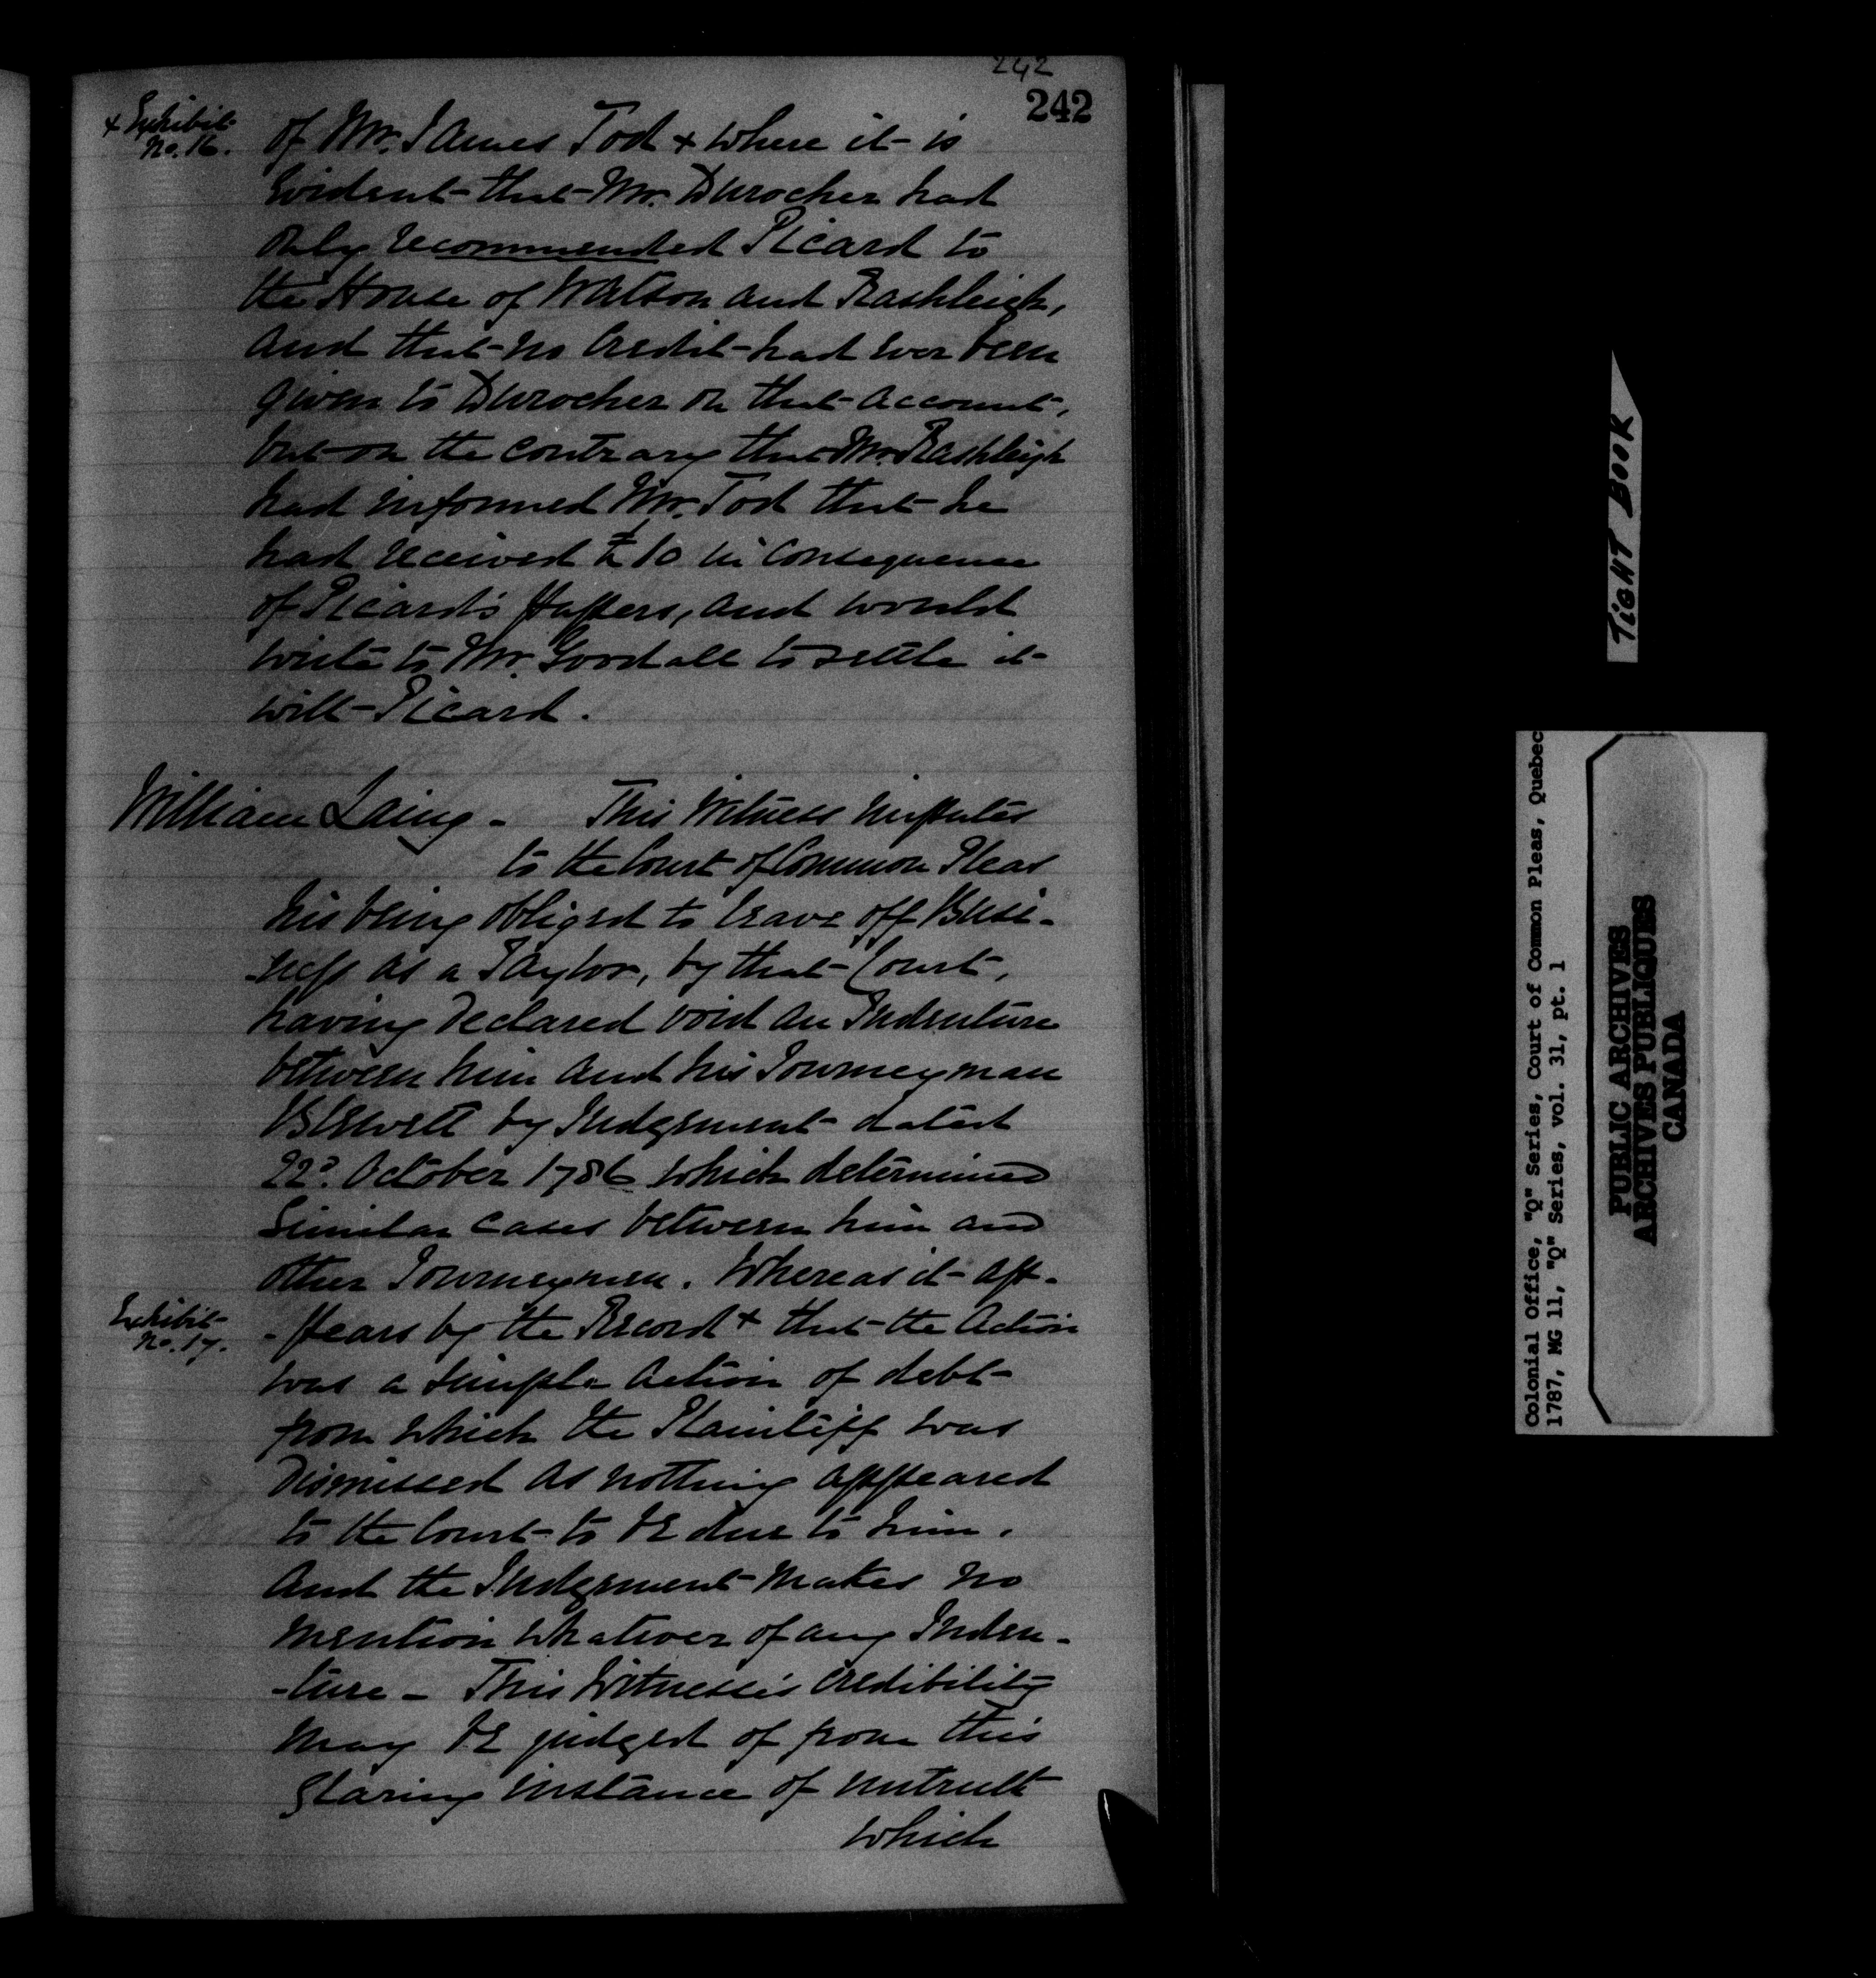 242
242
+ Exhibit
No. 16.
of Mr. James Tod + where it is
Evident that Mr. Durocher had
only recommended Picard to
the House of Watson and Rashleigh,
and that no Credit had ever been
given to Durocher on that account,
but on the contrary that Mr. Rashleigh
had informed Mr. Tod that he
had received £10 in consequence
of Picard's Papers, and would
write to Mr. Goodall to settle it
with Picard.
William Laing - This Witness imputes
to the Court of Common Pleas
his being obliged to leave off Busi-
-ness as a Taylor, by that Court,
having declared void an Indenture
between him and his Journeyman
by Judgement dated
22d. October 1786 which determined
Similar cases between him and
other Journeymen. Whereas it ap-
Exhibit
No. 17.
-pears by the Record + that the Action
was a simple Action of debt
from which the Plaintiff was
Dismissed as nothing appeared
to the Court to be due to him.
And the Judgement makes no
mention whatever of any Inden-
-ture - This Witness's credibility
may be judged of from this
glaring instance of untruth
which
TIGHT BOOK
Colonial Office, "Q" Series, Court of Common Pleas, Quebec
1787, MG 11, "Q" Series, vol. 31, pt. 1
PUBLIC ARCHIVES
ARCHIVES PUBLIQUES
CANADA